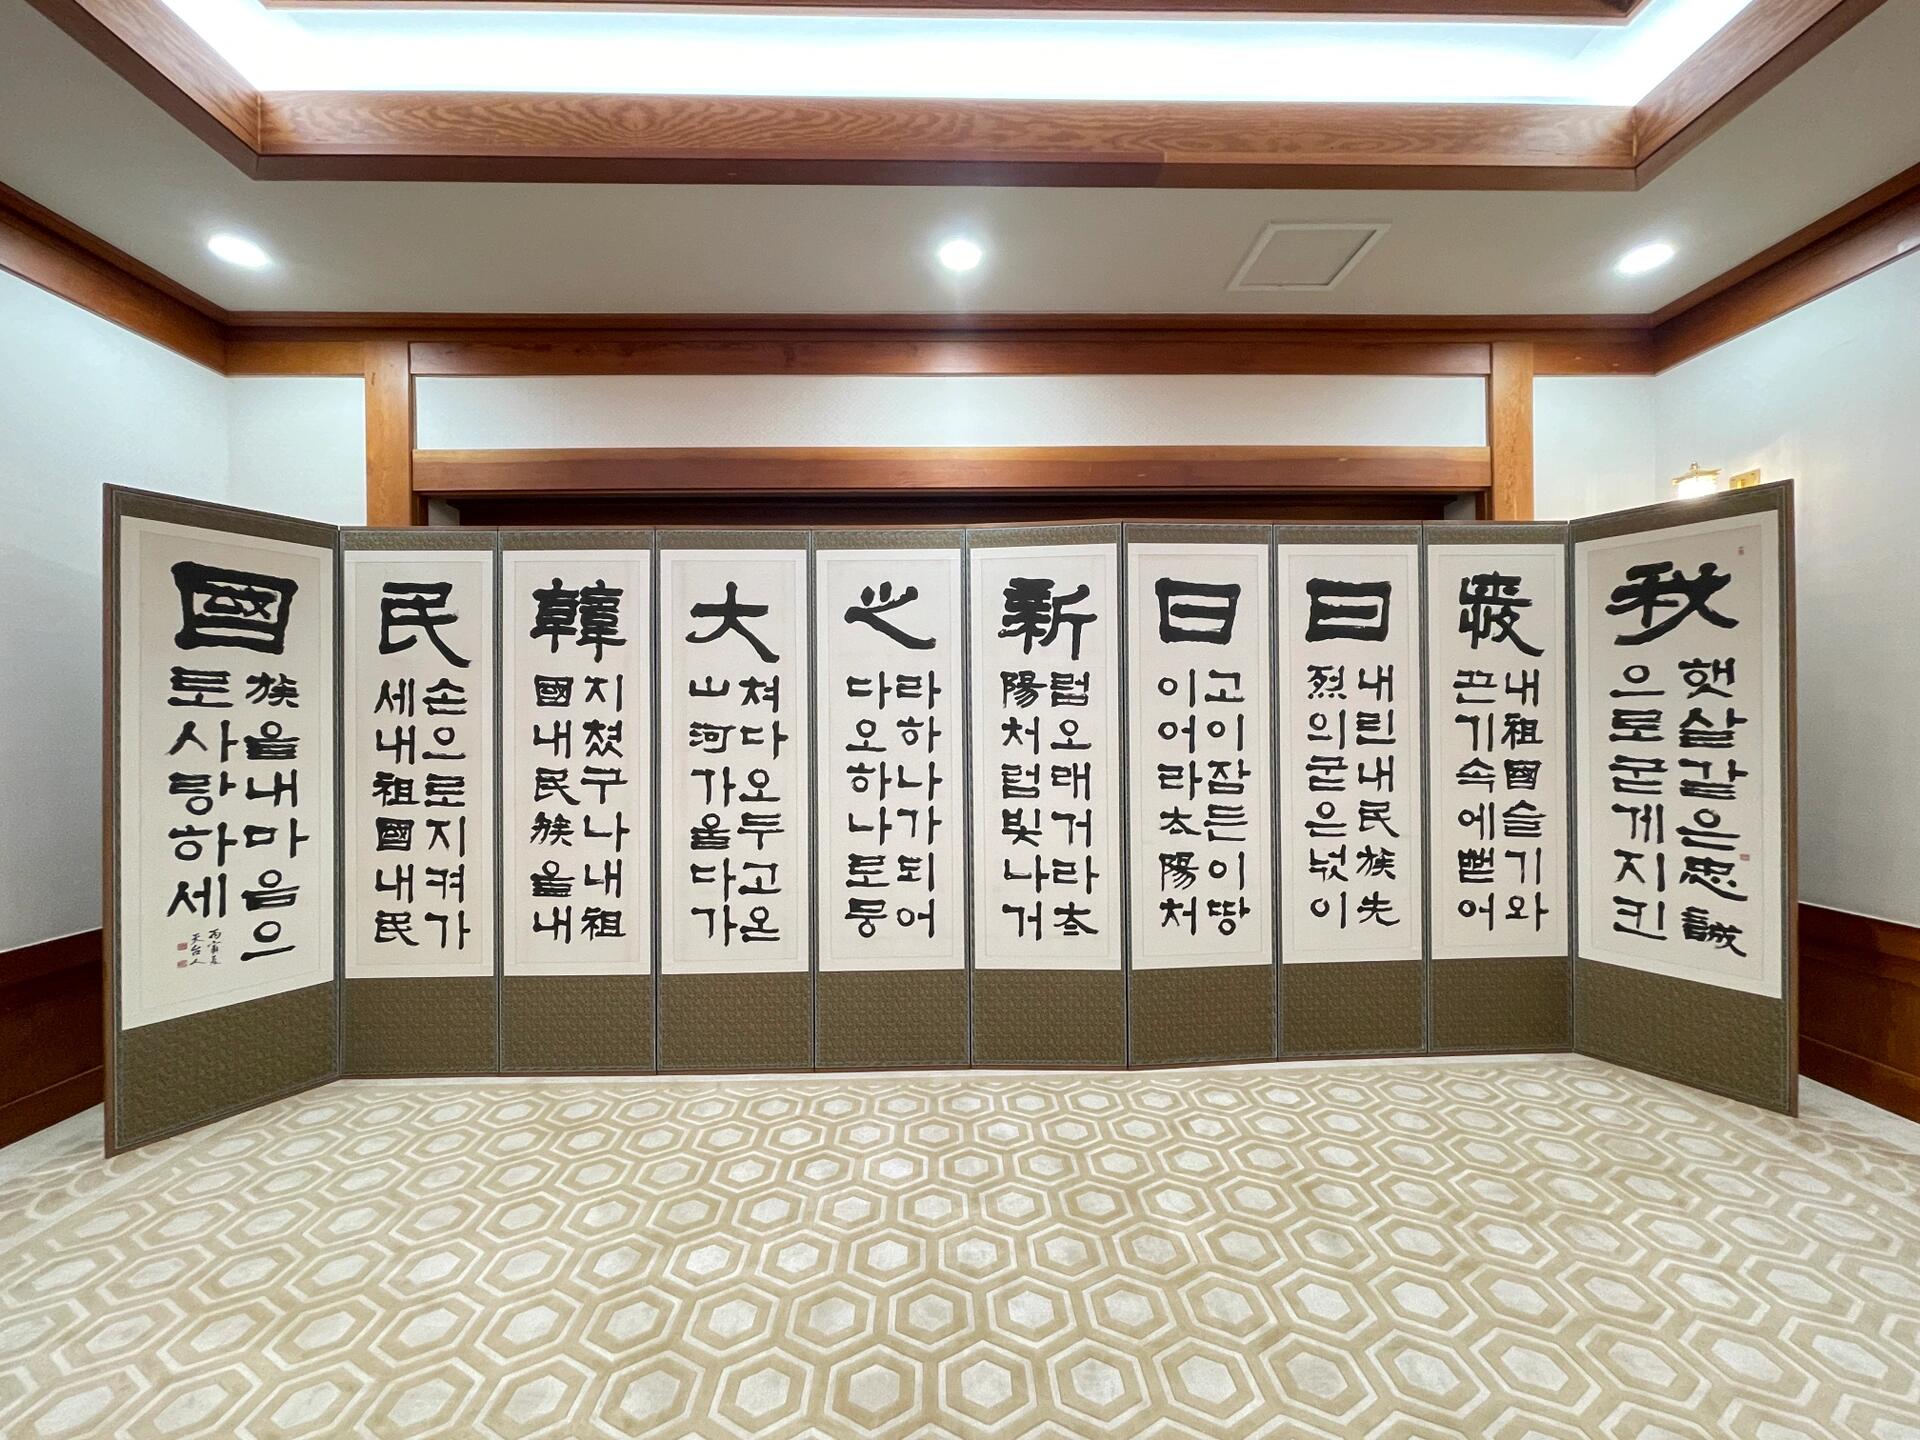 秋
햇살같은忠誠
으로굳게지킨
내祖國슬기와
끈기속에뻗어
日
내린내民族先
烈의굳은넋이
日
고이잠든이땅
이어라太陽처
新
럼오래거라太
陽처럼빛나거
心
라하나가되어
다오하나로뭉
大
쳐다오두고온
山河가울다가
韓
지쳤구나내祖
國내民族을내
民
손으로지켜가
세내祖國내民
國
族을내마음으
로사랑하세
丙寅
天台人